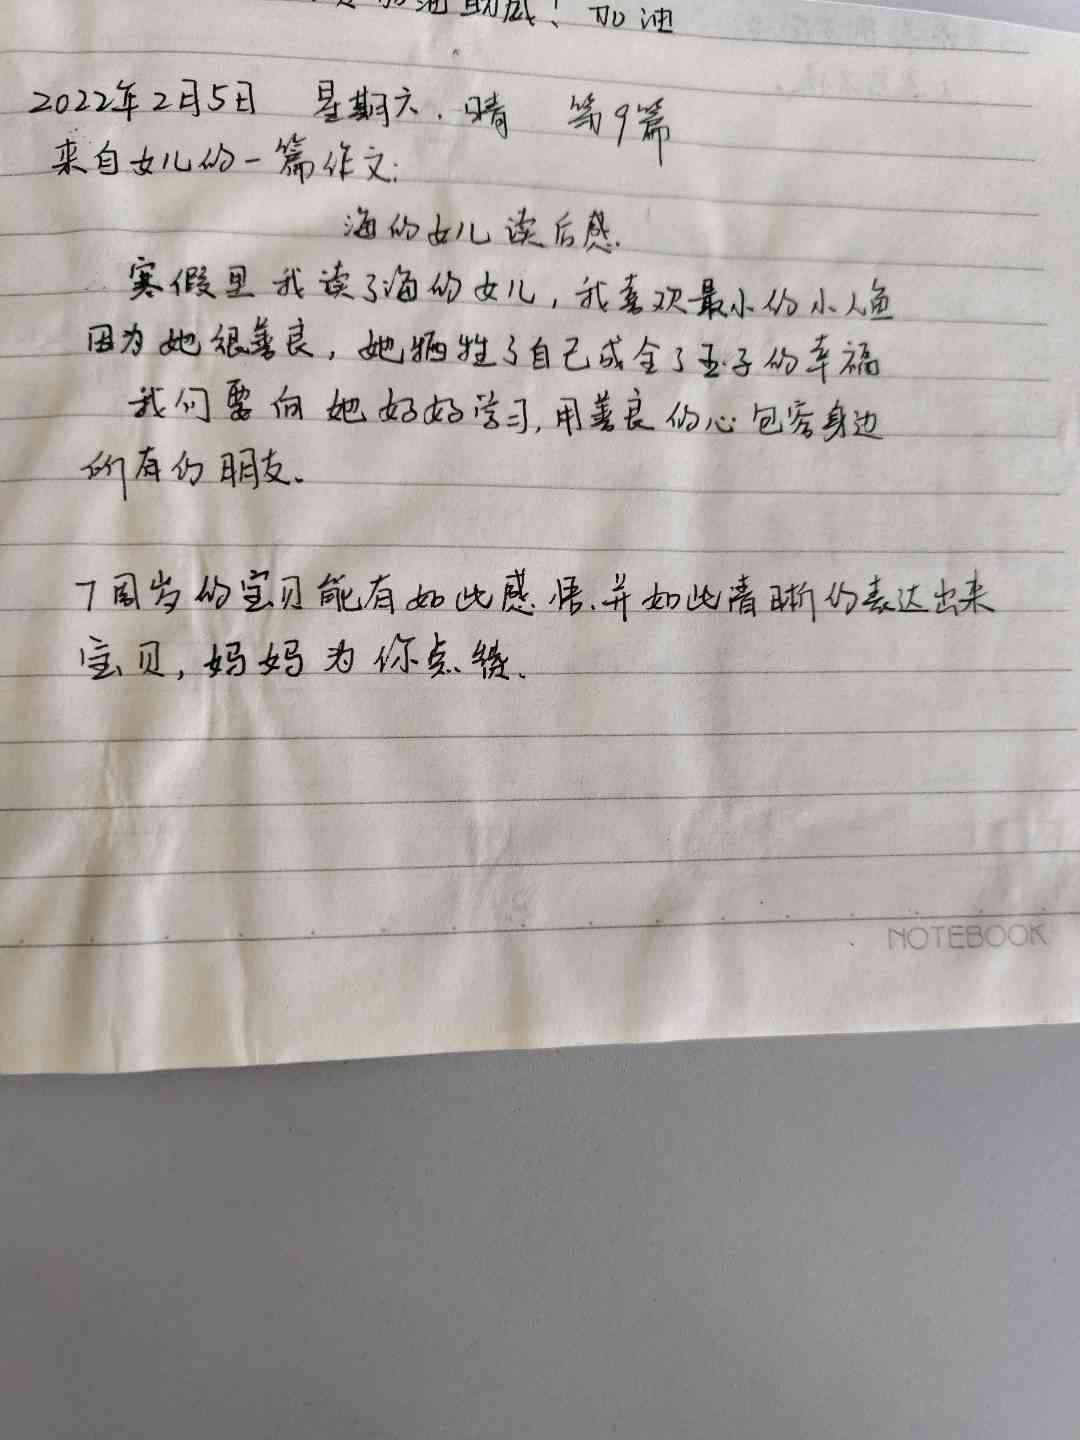 加油助威！加油
2022年2月5日 星期六.晴 第9篇
来自女儿的一篇作文:
海的女儿读后感.
寒假里我读了海的女儿,我喜欢最小的小人鱼
因为她很善良,她牺牲了自己成全了王子的幸福
我们要向她好好学习,用善良的心包容身边
所有的朋友.
7周岁的宝贝能有如此感悟.并如此清晰的表达出来
宝贝,妈妈为你点赞.
NOTEBOOK